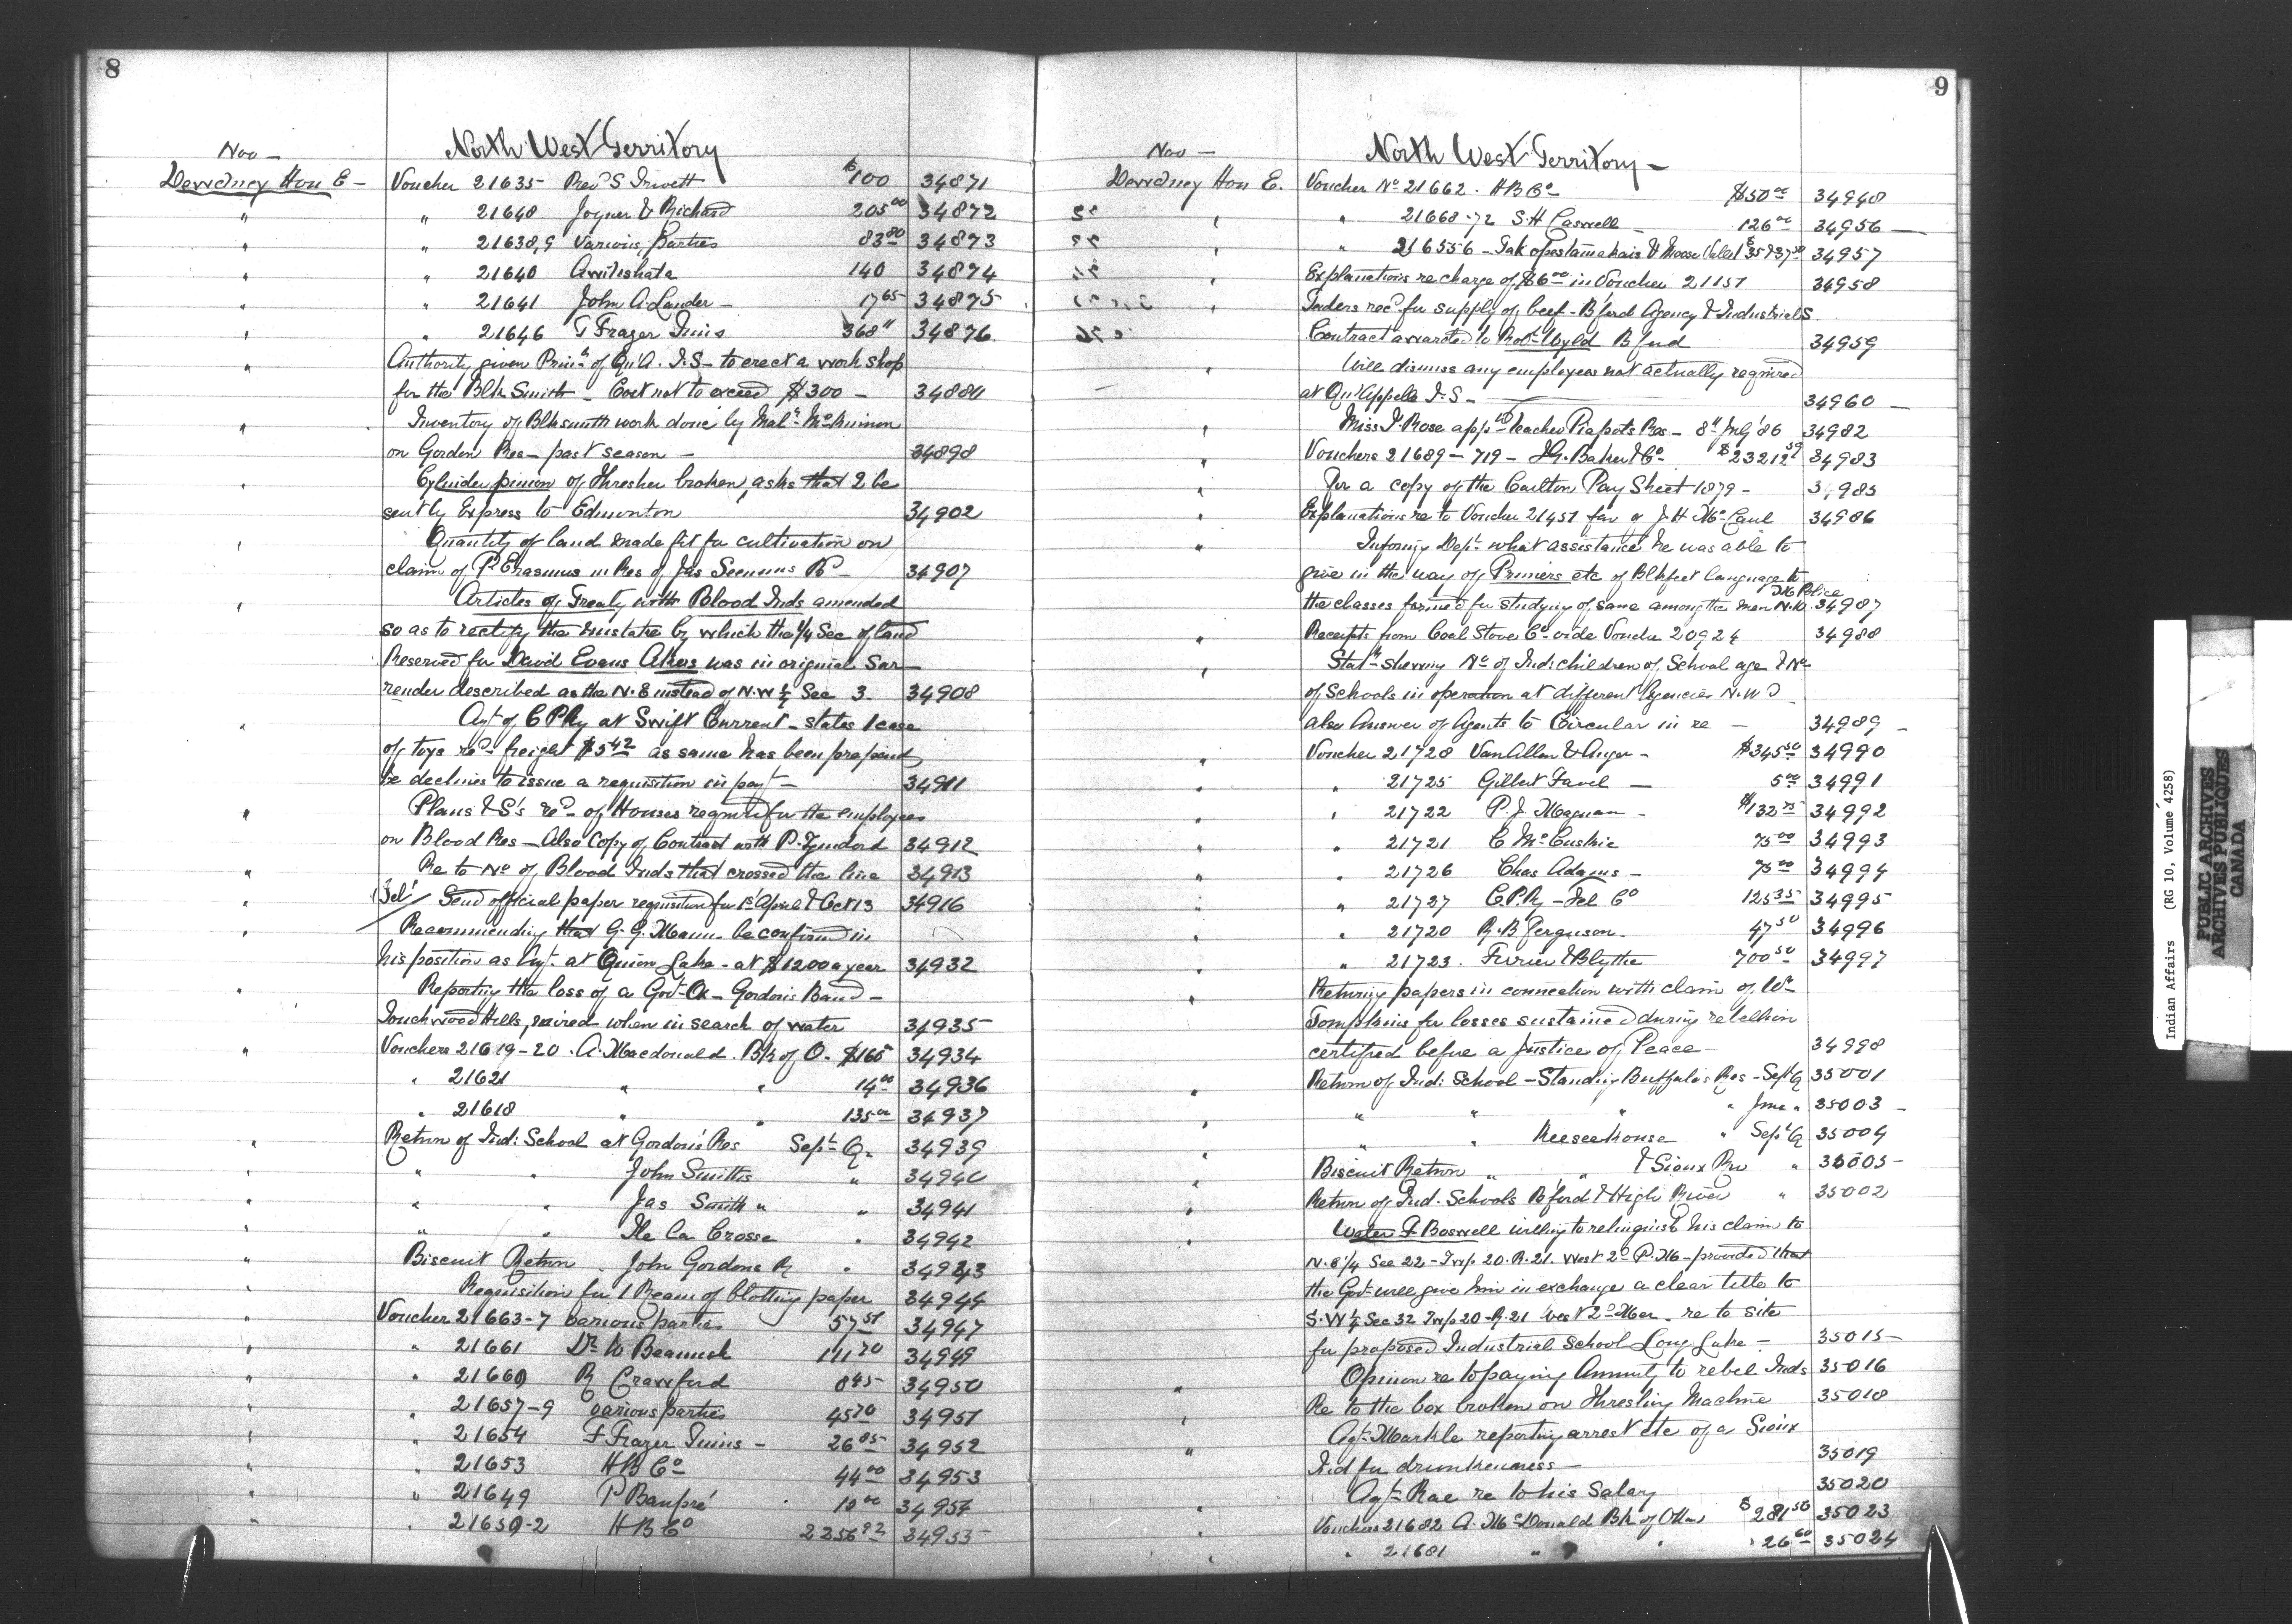 8
North West Territory
Nov —
Dewdney Hon E — Voucher 21635 Rev'd S Trivett $100 34871
" " 21648 Joyner & Richard 205 00 34872
" " 21638,9 Various Parties 83 80 34873
" " 21640 140 34874
" " 21641 John A. Lauder — 17 65 34875
" " 21646 Frazer Tims 368 34876
" Authority given Prin. of Qu'A. I.S — to erect a work shop
for the Blk Smith — Cost not to exceed $300 — 34880
" Inventory of Blksmith work done by
on Gordon Res — past season — 34898
" Cylinder pinion of Thresher broken, asks that 2 be
sent by Express to Edmonton 34902
" Quantity of land made fit for cultivation on
claim of P. Erasmus in Res of Jas Seenums Rs — 34907
" Articles of Treaty with Blood Inds amended
so as to rectify the mistake by which the 1/4 Sec of land
Reserved for David Evans Akers was in original Sur—
render described as the N.E instead of N.W 1/4 Sec 3. 34908
" Agt of C P Ry at Swift Current — states 1 case
of toys rec'd — freight $5 42 as same has been prepaid
he declines to issue a requisition in pay't — 34911
" Plans & S's re'd of Houses required for the employees
on Blood Res — Also Copy of Contract with P. 34912
" Re to No of Blood Inds that crossed the line 34913
" (Tel) Send official paper requisition for 1st April & Oct 13 34916
" Recommending that G. G. Mann be confirmed in
his position as Agt. at Onion Lake — at $1200 a year 34932
" Reporting the loss of a Gov't Ox — Gordon's Band —
Touchwood Hills, mired when in search of water 34935
" Vouchers 21619-20 . A. Macdonald . Bk of O. $165 34934
" 21621 " " 14 00 34936
" 21618 " " 135 00 34937
" Return of Ind: School at Gordon's Res Sept Q. 34939
" " " John Smiths " 34940
" " " Jas Smith " " 34941
" " " Ile La Crosse " 34942
" Biscuit Return . John Gordons R " 34943
" Requisition for 1 Ream of blotting paper 34944
" Voucher 21663-7 various parties 57 51 34947
" " 21661 Dr W Beamish 111 70 34949
" " 21660 R Crawford 8 45 34950
" " 21657-9 various parties 45 70 34951
" " 21654 F Frazer Tims — 26 85 34952
" " 21653 H B Co 44 00 34953
" " 21649 P Baupré 10 00 34954
" " 21650-2 H B Co 2256 92 34955
9
North West Territory —
Nov —
Dewdney Hon E. Voucher No 21662 . H B Co $50 00 34948
" " 21668-72 S.H Caswell — 126 00 34956 —
" " 216556 — & Moose 34957
" Explanations re charge of $6 00 in Voucher 21151 34958
" Tenders rec'd for supply of beef — B'ford Agency & Industrials.
Contract awarded to Rob't Wyld B'ford 34959
" Will dismiss any employees not actually required
at Qu'Appelle I.S — 34960 —
" Miss Rose app'd teacher Piapots Res — 8th July '86 34982
" Vouchers 21689 — 719 — I.G. Baker & Co $23212 34983
" For a copy of the Carlton Pay Sheet 1879 — 3,985
" Explanations re to Voucher 21451 fav of J. H McCaul 34986
" Informing Dept. what assistance he was able to
give in the way of Primers etc of Blkfeet language to
the classes formed for studying of same among the men N.W. M Police 34987
" Receipts from Coal Stove Co vide Voucher 20924 34988
" Stat't shewing No of Ind: children of School age & No
of Schools in operation at different Agencies N.W.T
also Answer of Agents to Circular in re — 34989 —
" Voucher 21728 VanAllan & Anger — $345 50 34990
" " 21725 Gilbert Favel — 5 00 34991
" " 21722 P. J. Magnan — $132 75 34992
" " 21721 C. McCuskie 75 00 34993
" " 21726 Chas Adams — 75 00 34994
" " 21727 C.P.Ry — Tel Co 125 35 34995
" " 21720 R.B Ferguson. 47 50 34996
" " 21723 . Ferrier & Blythe 700 50 34997
" Returning papers in connection with claim of Wm
Tompkins for losses sustained during rebellion
certified before a Justice of Peace — 34998
" Return of Ind: School — Standing Buffalos Res — Sept Q 35001
" " " " June " 35003 —
" " Keeseekouse " Sept Q 35004
" Biscuit Return " " & Sioux Res " 35005 —
" Return of Ind. Schools B'ford & High River " 35002
" Water F Boswell willing to relinquish his claim to
N.E 1/4 Sec 22 — Twp 20. R. 21. West 2d P.M — provided that
the Gov't will give him in exchange a clear title to
S.W 1/4 Sec 32 Twp 20 — R. 21 West 2d Mer. re to site
for proposed Industrial School Long Lake — 35015
" Opinion re to paying Annuity to rebel Inds 35016
" Re to the box broken on Threshing Machine 35018
" Agt. Markle reporting arrest etc of a Sioux
Ind for drunkenness — 35019
Agt. Rae re to his Salary 35020
" Vouchers 21682 A. McDonald Bk of Ottawa $281 50 35023
" " 21681 " " 26 60 35024
Indian Affairs (RG 10, Volume 4258)
PUBLIC ARCHIVES
ARCHIVES PUBLIQUES
CANADA